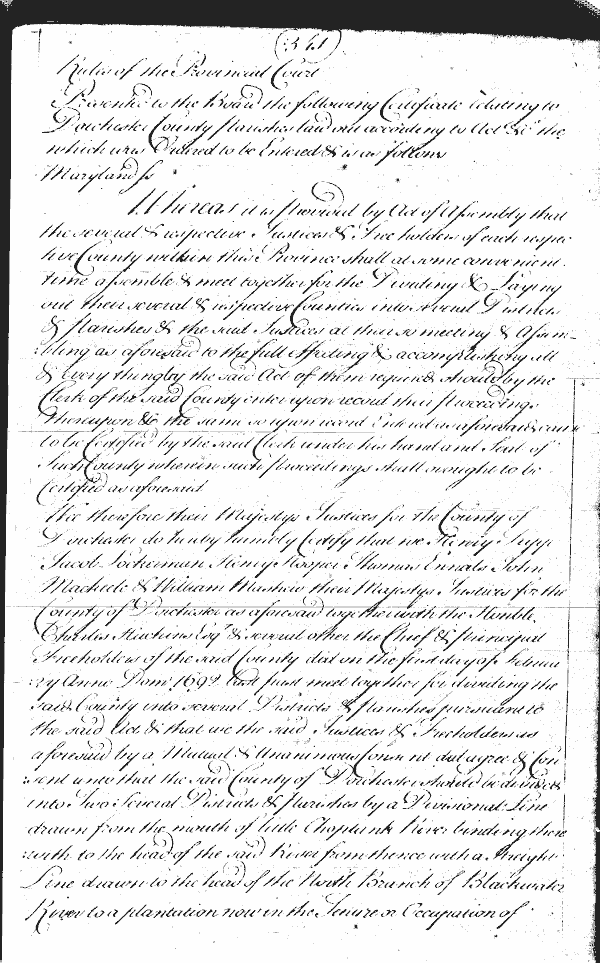 341
Rules of the Provincial Court
Presented to the Board the following Certificate relating to
Dorchester County Parishes laid out according to Act &c the
which was Ordered to be Entered & is as follows
Maryland ss
Whereas it is Provided by Act of Assembly that
the several & respective Justices & Freeholders of each respec
tive County within this Province shall at some convenient
time assemble & meet together for the Dividing & Laying
out their several & respective Counties into several Districts
& Parishes & the said Justices at their so meeting & Assem-
bling as aforesaid to the full effecting & accomplishing all
& every thing by the said Act of them required should by the
Clerk of the said County enter upon record their Proceedings
thereupon & the same so upon record Entered as aforesaid cause
to be Certified by the said Clerk under his hand and Seal of
Such County wherein such Proceedings shall or ought to be
Certified as aforesaid
We therefore their Majestys Justices for the County of
Dorchester do hereby humbly Certify that we Henry
Jacob Lockerman Henry Hooper Thomas Ennals John
Mackeele & William Mashew their Majestys Justices for the
County of Dorchester as aforesaid together with the Honble
Charles Hutchins Esqr & several other the Chief & Principal
Freeholders of the said County did on the first day of Februa
ry Anno Dom 1692 last past meet together for dividing the
said County into several Districts & Parishes pursuant to
the said Act & that we the said Justices & Freeholders as
aforesaid by a Mutual & Unanimous Consent did agree & Con
sent unto that the said County of Dorchester should be divided
into Two Several Districts & Parishes by a Divisional Line
drawn from the mouth of little Choptank River binding there
with to the head of the said River from thence with a Streight
Line drawn to the head of the North Branch of Blackwater
River to a plantation now in the Tenure or Occupation of